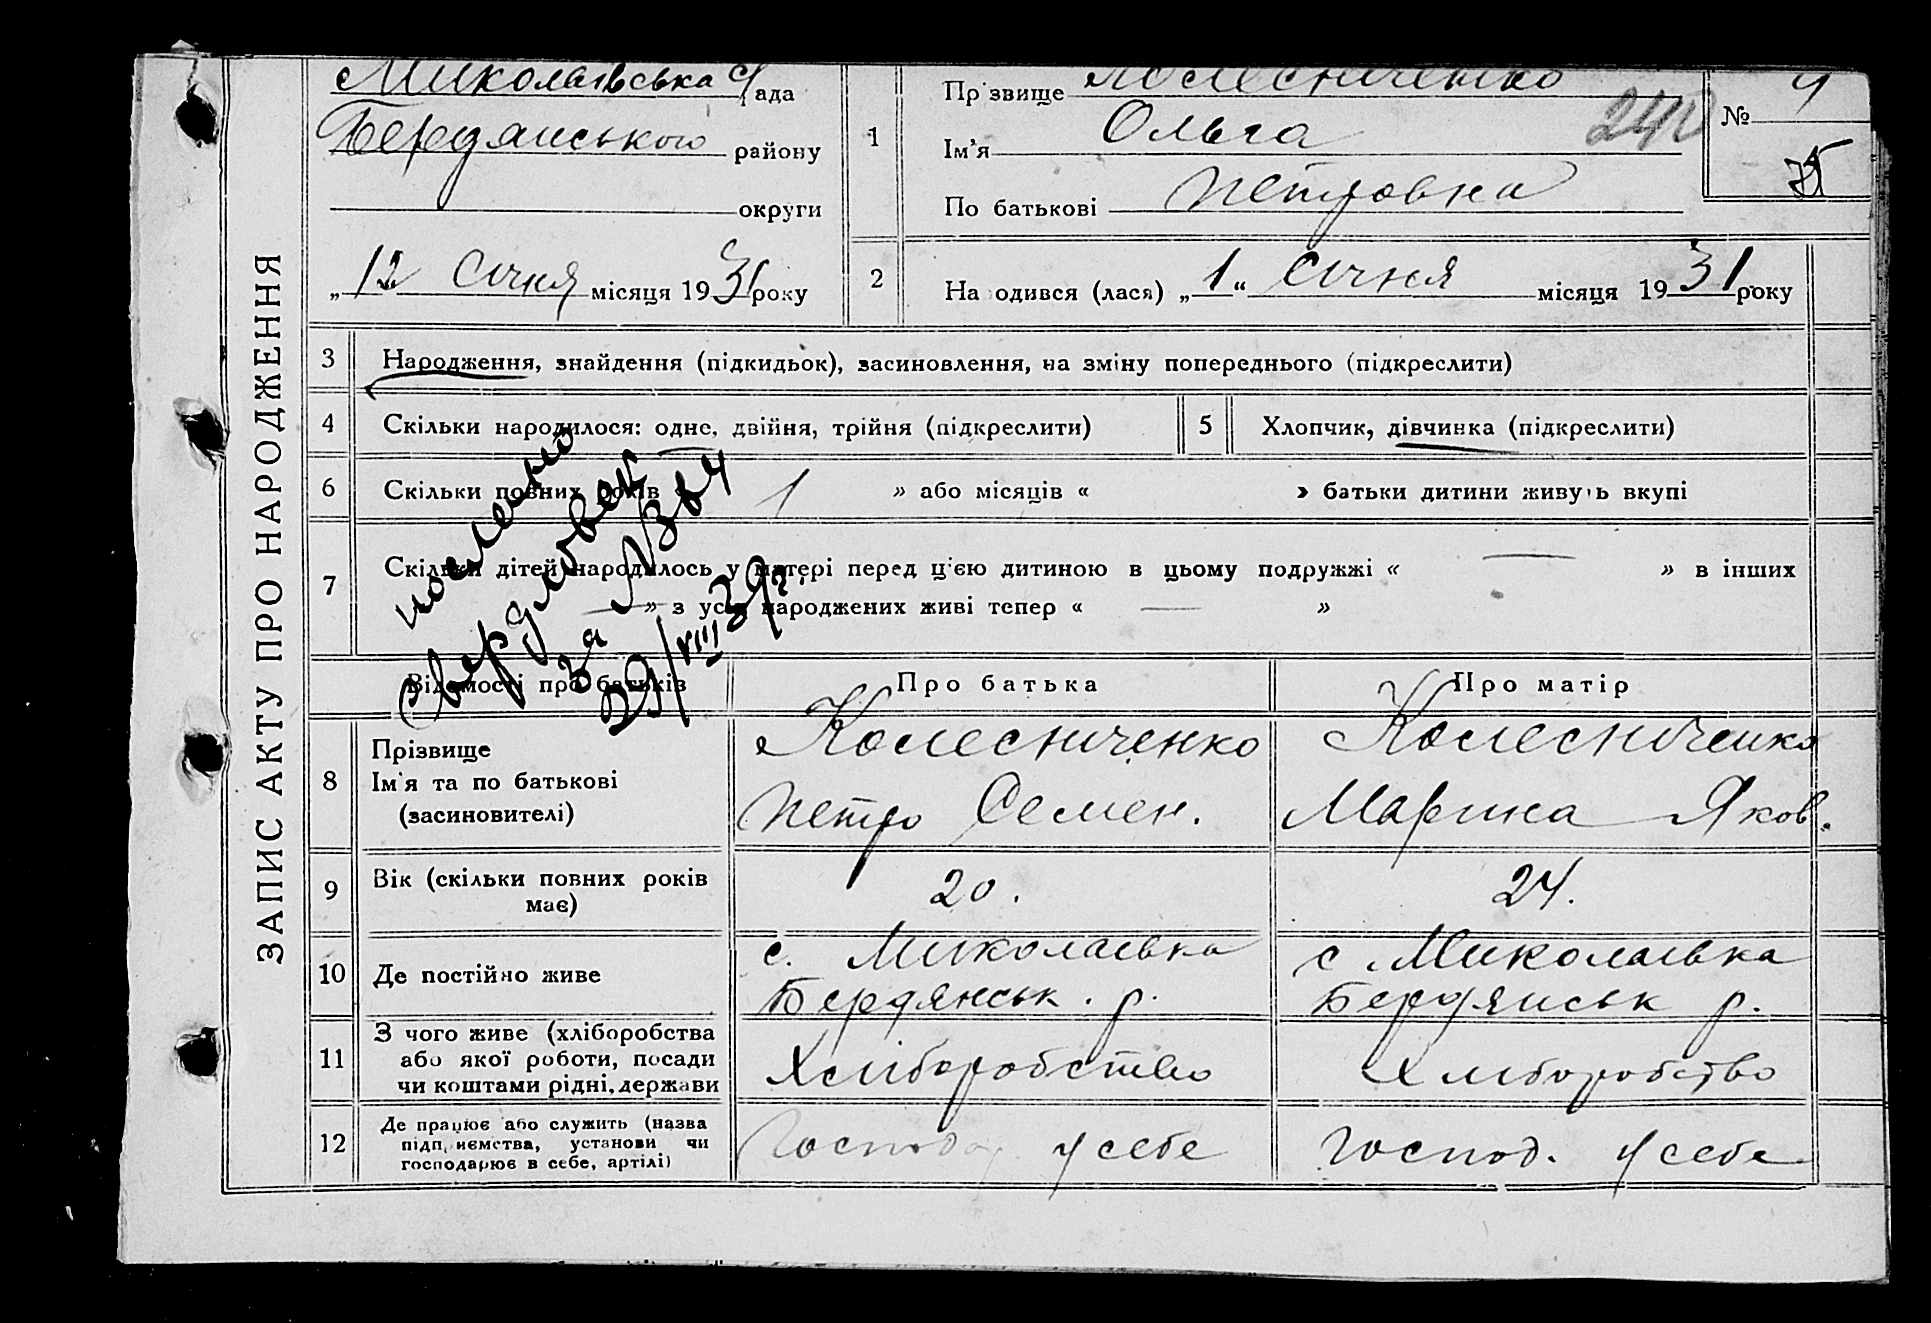 ЗАПИС АКТУ ПРО НАРОДЖЕННЯ
Миколаївська рада
Бердянського району
округи
„12 Січня місяця 1931 року
1
Прізвище Колесниченко
Ім'я Ольга
По батькові Петровна
240
№ 4
2
Народився (лася) „1“ Січня місяця 1931 року
3 Народження, знайдення (підкидьок), засиновлення, на зміну попереднього (підкреслити)
4 Скільки народилося: одне, двійня, трійня (підкреслити)
5 Хлопчик, дівчинка (підкреслити)
6 Скільки повних років « 1 » або місяців « » батьки дитини живуть вкупі
7 Скільки дітей народилось у матері перед цією дитиною в цьому подружжі « — » в інших
— » з усіх народжених живі тепер « — »
послано
Свердловск
за №
29/VIII 39 г.
Відомості про батьків
Про батька
Про матір
8 Прізвище
Ім'я та по батькові
(засиновителі)
Колесниченко
Петро Семен.
Колесниченко
Марина Яков.
9 Вік (скільки повних років
має)
20.
24.
10 Де постійно живе
с. Миколаївка
Бердянськ. р.
с. Миколаївка
Бердянськ р.
11 З чого живе (хліборобства
або якої роботи, посади
чи коштами рідні, держави
Хліборобство
Хліборобство
12 Де працює або служить (назва
підприємства, установи чи
господарює в себе, артілі)
Господар у себе
Господ. у себе